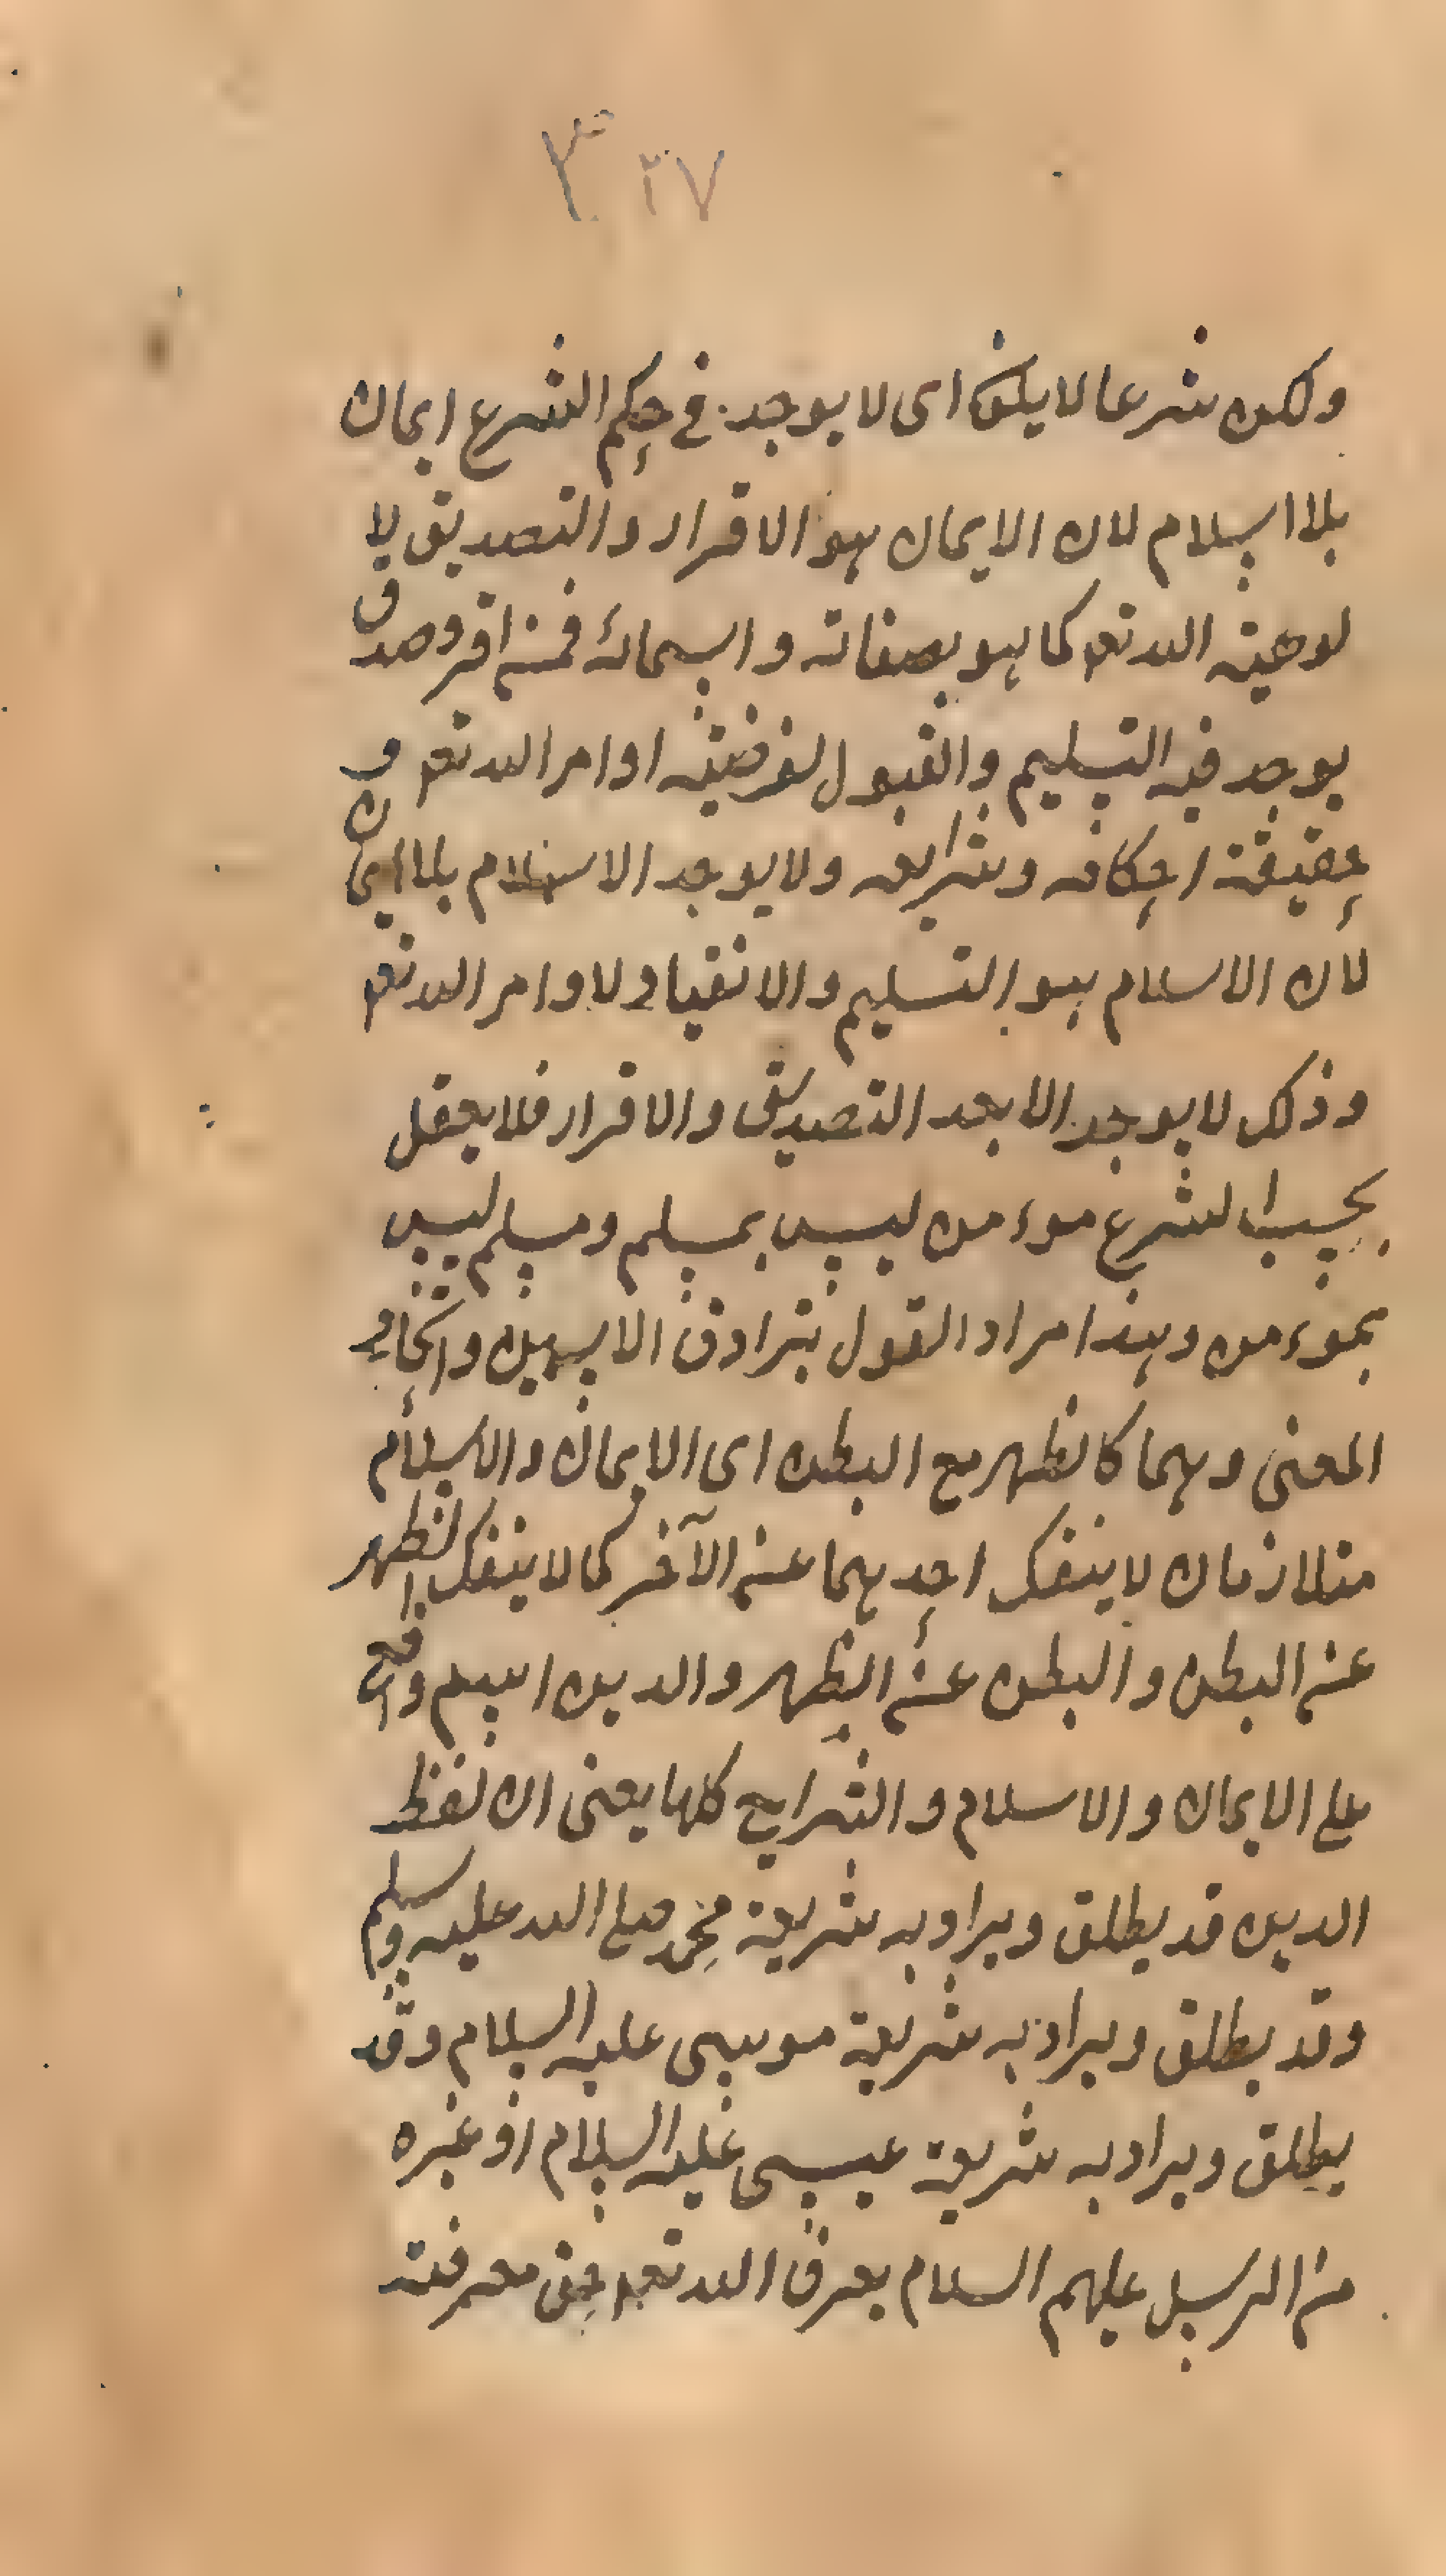 ٣ ٢٧
ولكن شرعا لا يكون اى لا يوجد في حكم الشرع ايمان
بلا اسلام لان الايمان هو الاقرار والتصديق لا
لوهية الله تعم كما هو بصفاته واسمائه فمن اقر وصدق
يوجد فيه التسليم والقبول لفرضية اوامر الله تعم و
حقيقة احكامه وشرايعه ولا يوجد الاسلام بلا ايمان
لان الاسلام هو التسليم والانقياد لاوامر الله تعم
وذلك لا يوجد الا بعد التصديق والاقرار فلا يعقل
بحسب الشرع موءمن ليس بمسلم ومسلم ليس
بموءمن وهذا مراد القول بترادف الاسمين واتحاد
المعنى وهما كالظهر مع البطن اى الايمان والاسلام
متلازمان لا ينفك احدهما عن الآخر كما لا ينفك الظهر
عن البطن والبطن عن الظهر والدين اسم واقع
على الايمان والاسلام والشرايع كلها يعنى ان لفظ
الدين قد يطلق ويراد به شريعة محمد صلى الله عليه وسلم
وقد يطلق ويراد به شريعة موسى عليه السلام وقد
يطلق ويراد به شريعة عيسى عليه السلام او غيره
من الرسل عليهم السلام يعرف الله تعم حق معرفته